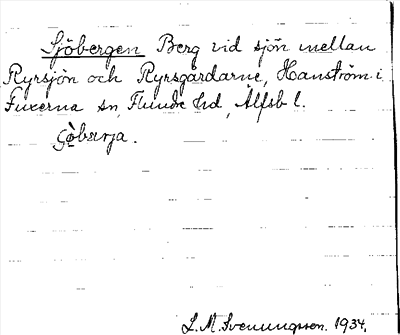 Sjöbergen Berg vid sjön mellan
Ryrsjön och Ryrsgårdarne, Hanström i
Fuxerna sn, Flunde hd, Älfsb l.
L. M. Svenungsson. 1934.